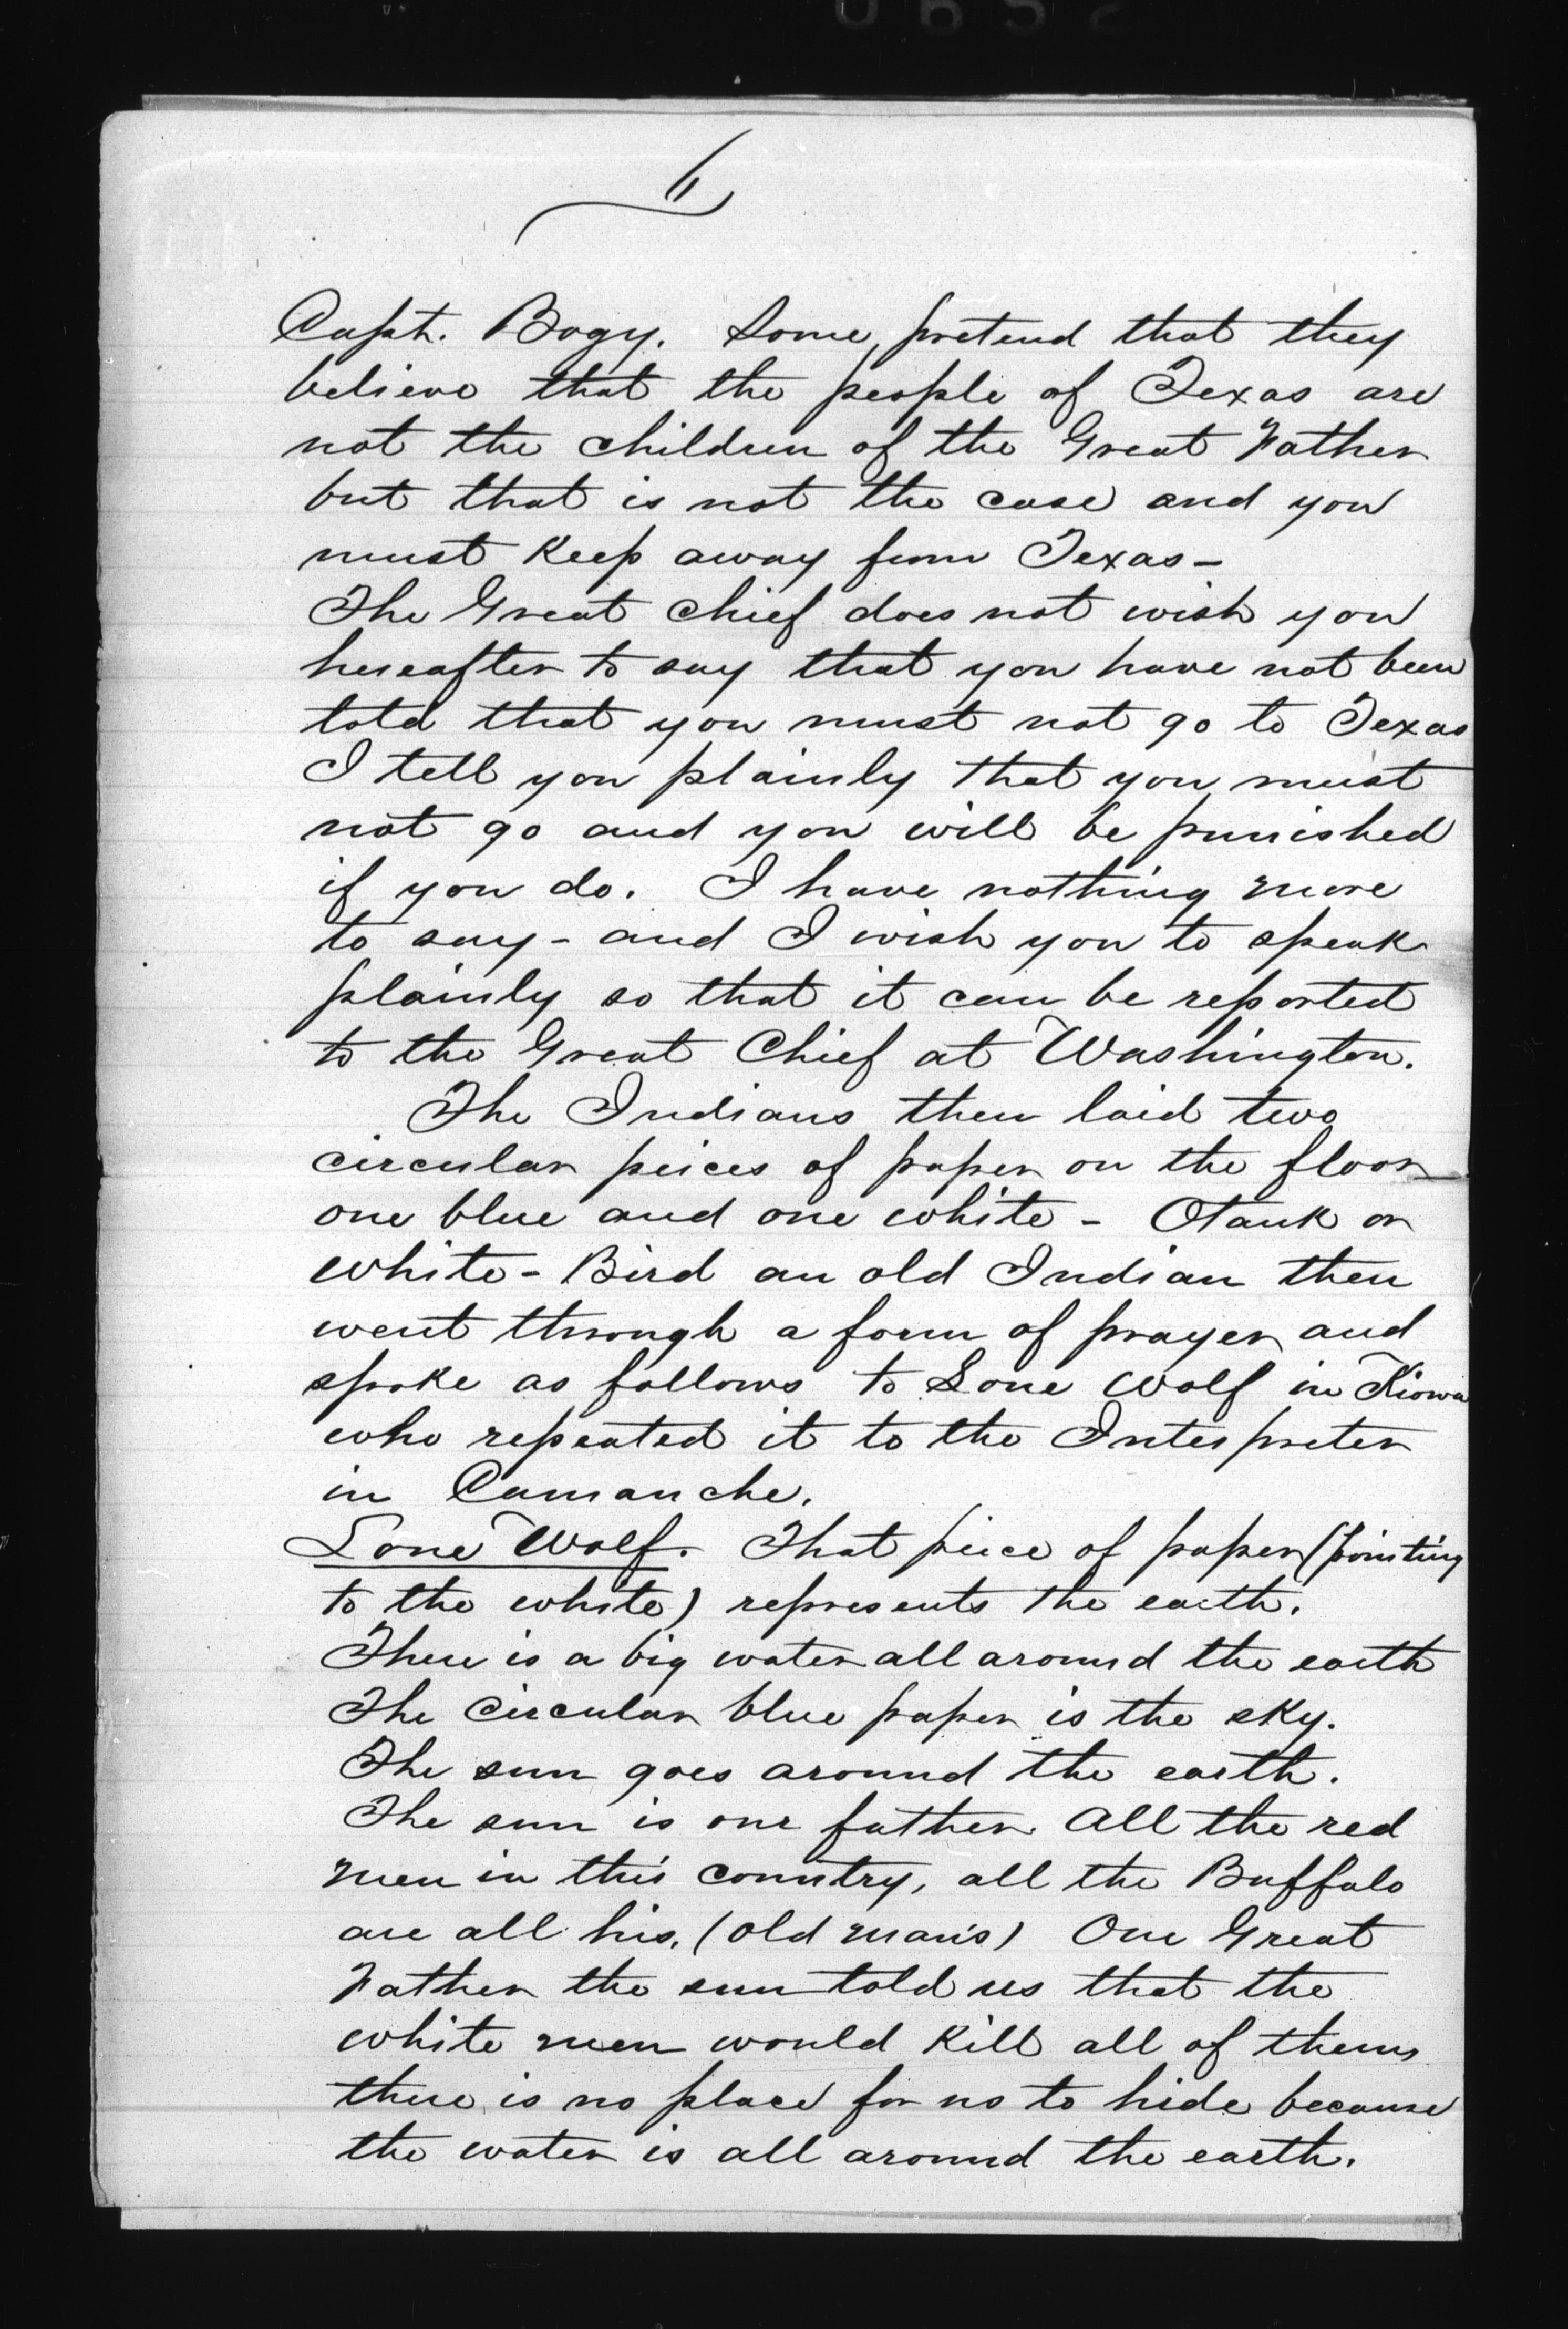 6
Capt. Bogy. Some, pretend that they
believe that the people of Texas are
not the children of the Great Father
but that is not the case and you
must Keep away from Texas—
The Great Chief does not wish you
hereafter to say that you have not been
told that you must not go to Texas
I tell you plainly that you must
not go and you will be punished
if you do. I have nothing more
to say - and I wish you to speak
plainly so that it can be reported
to the Great Chief at Washington.
The Indians then laid two
circular peices of paper on the floor
one blue and one white - Otank or
White-Bird an old Indian then
went through a form of prayer and
spoke as follows to Lone Wolf in Kiowa
who repeated it to the Interpreter
in Camanche.
Lone Wolf. That peice of paper (pointing
to the white) represents the earth.
There is a big water all around the earth
The circular blue paper is the sky.
The sun goes around the earth.
The sun is our father. All the red
men in this country, all the Buffalo
are all his. (old man's) Our Great
Father the sun told us that the
white men would Kill all of them,
there is no place for us to hide because
the water is all around the earth.